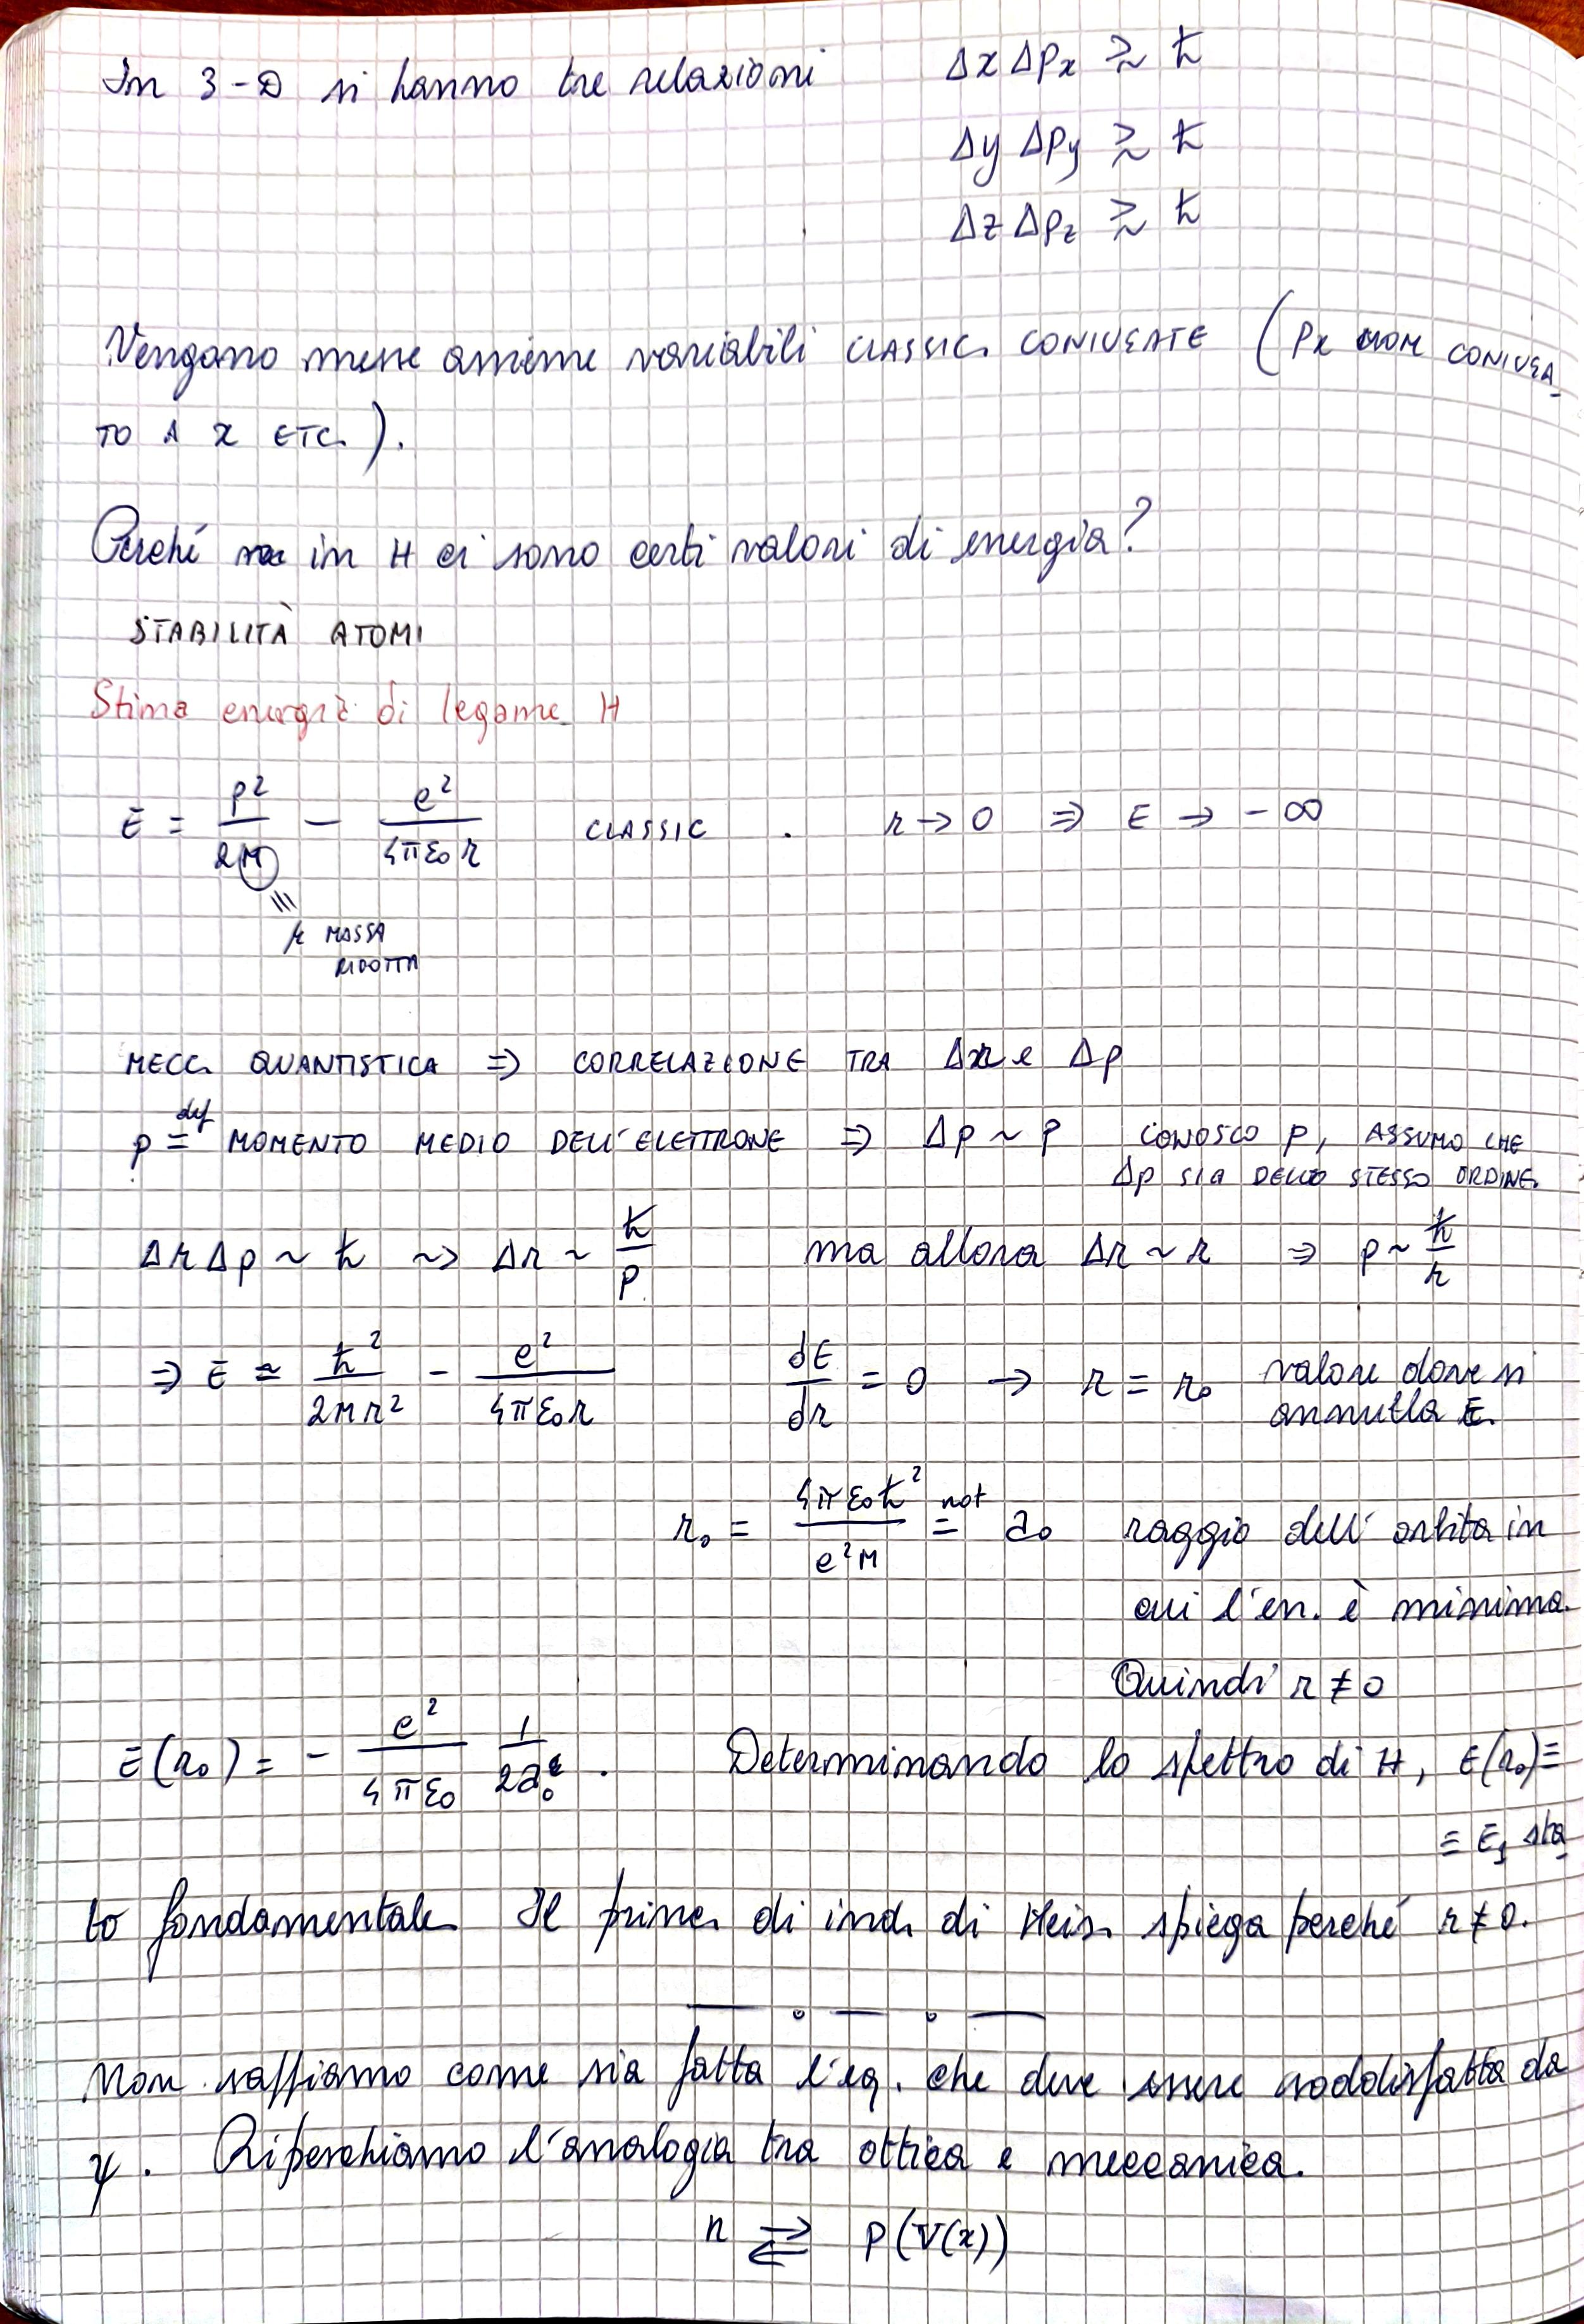 In 3-D si hanno tre relazioni Δx Δpx ≳ ħ
Δy Δpy ≳ ħ
Δz Δpz ≳ ħ
Vengono messe assieme variabili CLASSIC. CONIUGATE (px mom CONIUGA-
TO A x ETC.).
Perché in H ci sono certi valori di energia?
STABILITÀ ATOMI
Stima energia di legame H
E = p²/2M − e²/4πε₀r CLASSIC . r → 0 ⇒ E → −∞
μ MASSA
RIDOTTA
MECC. QUANTISTICA ⇒ CORRELAZIONE TRA Δr e Δp
p =def MOMENTO MEDIO DELL'ELETTRONE ⇒ Δp ~ p CONOSCO p, ASSUMO CHE
Δp SIA DELLO STESSO ORDINE.
Δr Δp ~ ħ ⇝ Δr ~ ħ/p ma allora Δr ~ r ⇒ p ~ ħ/r
⇒ E ≃ ħ²/2Mr² − e²/4πε₀r dE/dr = 0 → r = r₀ valore dove si
annulla E.
r₀ = 4πε₀ħ²/e²M =not a₀ raggio dell'orbita in
cui l'en. è minima.
Quindi r ≠ 0
E(r₀) = − e²/4πε₀ 1/2a₀ . Determinando lo spettro di H, E(r₀) =
= E₁ sta-
to fondamentale. Il princ. di ind. di Heis. spiega perché r ≠ 0.
Non sappiamo come sia fatta l'eq. che deve essere soddisfatta da
ψ. Riperchiamo l'analogia tra ottica e meccanica.
n ⇄ p(V(x))